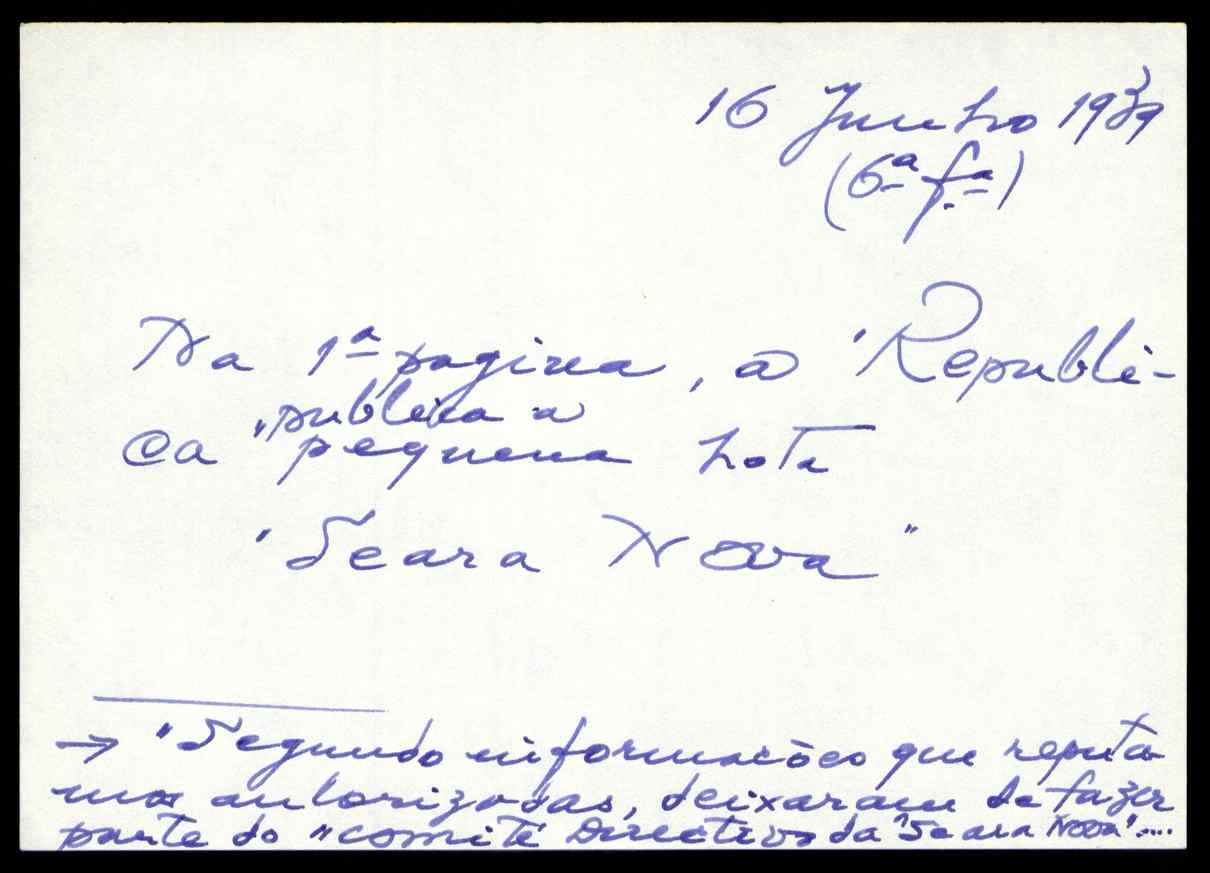 16 Junho 1939
(6ª fª)
Na 1ª pagina, a "Republi-
publica a
ca" pequena nota
"Seara Nova"
→ "Segundo informações que reputa
mos autorizadas, deixaram de fazer
parte do "comité Directivo da "Seara Nova"....